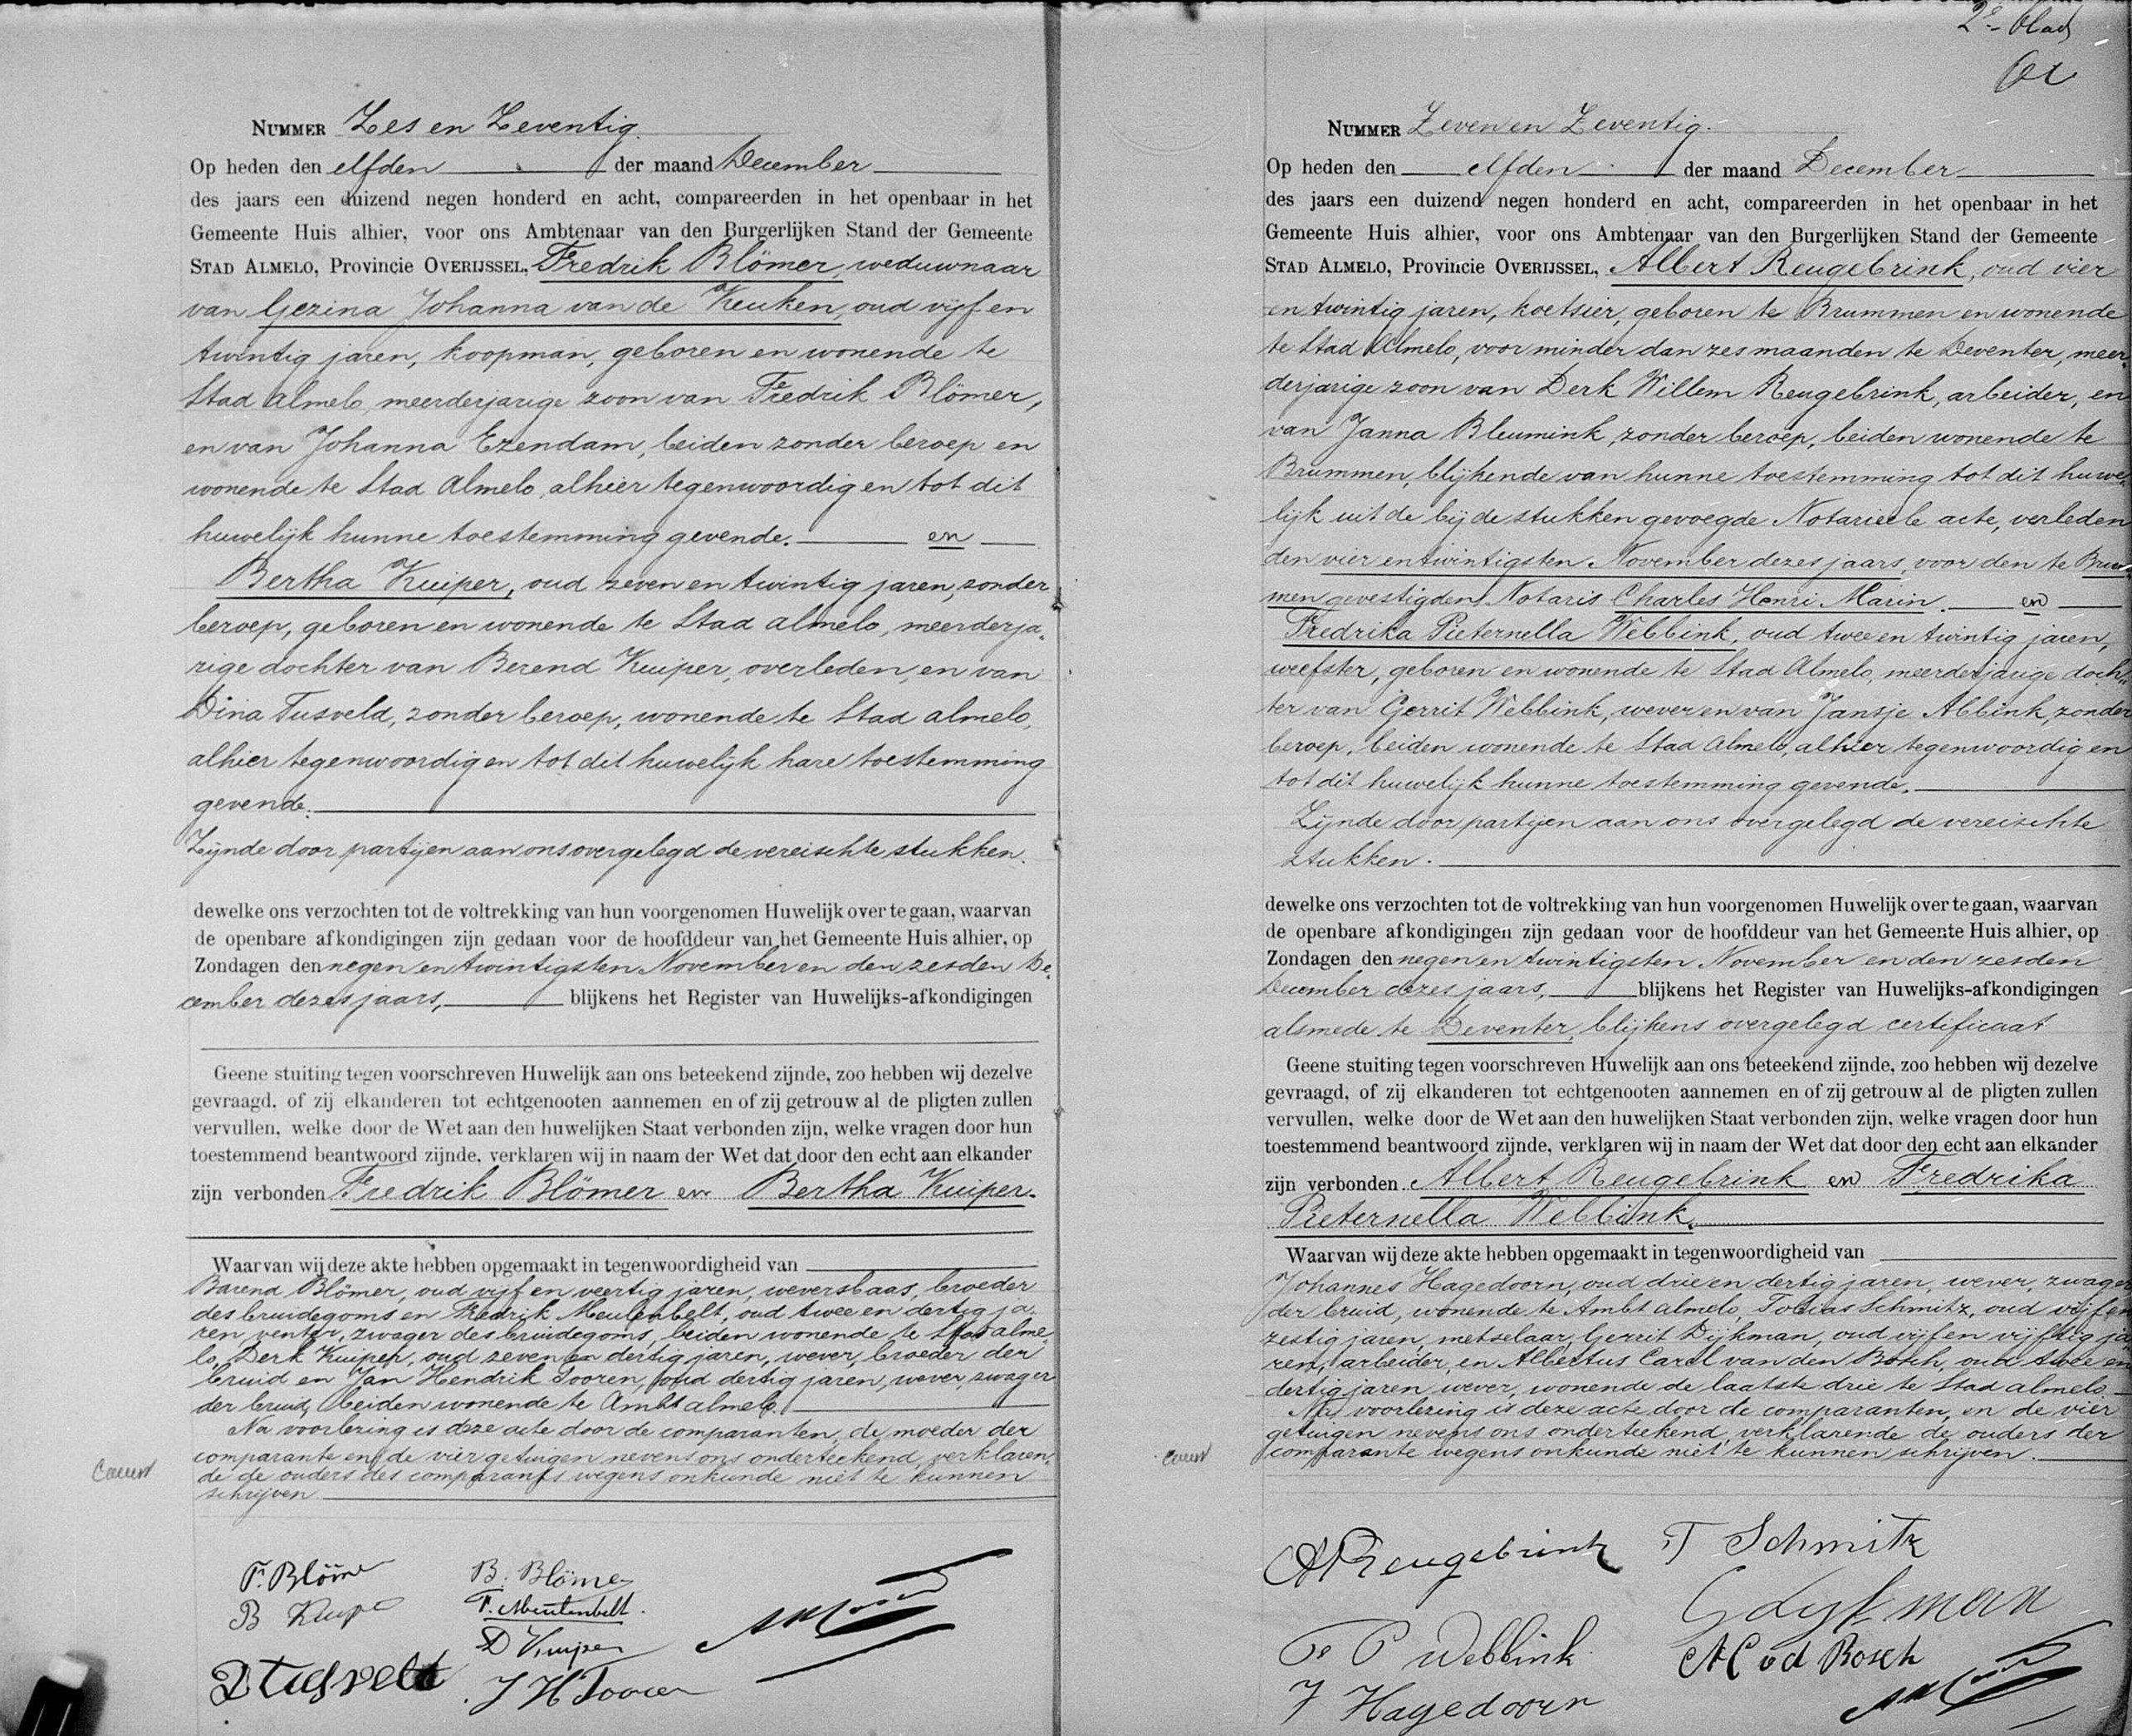 NUMMER Zes en Zeventig.
Op heden den elfden der maand December
des jaars een duizend negen honderd en acht, compareerden in het openbaar in het
Gemeente Huis alhier, voor ons Ambtenaar van den Burgerlijken Stand der Gemeente
STAD ALMELO, Provincie OVERIJSSEL, Fredrik Blömer, weduwnaar
van Gezina Johanna van de Keuken, oud vijf en
twintig jaren, koopman, geboren en wonende te
Stad Almelo, meerderjarige zoon van Fredrik Blömer,
en van Johanna Ezendam, beiden zonder beroep en
wonende te Stad Almelo, alhier tegenwoordig en tot dit
huwelijk hunne toestemming gevende. en
Bertha Kuiper, oud zeven en twintig jaren, zonder
beroep, geboren en wonende te Stad Almelo, meerderja-
rige dochter van Berend Kuiper, overleden, en van
Dina Tusveld, zonder beroep, wonende te Stad Almelo,
alhier tegenwoordig en tot dit huwelijk hare toestemming
gevende.
Zijnde door partijen aan ons overgelegd de vereischte stukken.
dewelke ons verzochten tot de voltrekking van hun voorgenomen Huwelijk over te gaan, waarvan
de openbare afkondigingen zijn gedaan voor de hoofddeur van het Gemeente Huis alhier, op
Zondagen den negen en twintigsten November en den zesden De-
cember dezes jaars, blijkens het Register van Huwelijks-afkondigingen
Geene stuiting tegen voorschreven Huwelijk aan ons beteekend zijnde, zoo hebben wij dezelve
gevraagd, of zij elkanderen tot echtgenooten aannemen en of zij getrouw al de pligten zullen
vervullen, welke door de Wet aan den huwelijken Staat verbonden zijn, welke vragen door hun
toestemmend beantwoord zijnde, verklaren wij in naam der Wet dat door den echt aan elkander
zijn verbonden Fredrik Blömer en Bertha Kuiper.
Waarvan wij deze akte hebben opgemaakt in tegenwoordigheid van
Barend Blömer, oud vijf en veertig jaren, weversbaas, broeder
des bruidegoms en Fredrik Meulenbelt, oud twee en dertig ja-
ren, venter, zwager des bruidegoms, beiden wonende te Stad Alme-
lo, Derk Kuiper, oud zeven en dertig jaren, wever, broeder der
bruid en Jan Hendrik Tooren, oud dertig jaren, wever, zwager
der bruid, beiden wonende te Ambt Almelo.
Na voorlezing is deze acte door de comparanten, de moeder der
comparante en de vier getuigen nevens ons onderteekend, verklaren-
de de ouders des comparants wegens onkunde niet te kunnen
schrijven.
F. Blömer
B. Blömer
B Kuiper
F. Meulenbelt.
D Kuiper
D Tusveld
J H Tooren
2e blad
NUMMER Zeven en Zeventig.
Op heden den elfden der maand December
des jaars een duizend negen honderd en acht, compareerden in het openbaar in het
Gemeente Huis alhier, voor ons Ambtenaar van den Burgerlijken Stand der Gemeente
STAD ALMELO, Provincie OVERIJSSEL, Albert Reugebrink, oud vier
en twintig jaren, koetsier, geboren te Brummen en wonende
te Stad Almelo, voor minder dan zes maanden te Deventer, meer-
derjarige zoon van Derk Willem Reugebrink, arbeider, en
van Janna Bleumink, zonder beroep, beiden wonende te
Brummen, blijkende van hunne toestemming tot dit huwe-
lijk uit de bij de stukken gevoegde Notarieele acte, verleden
den vier en twintigsten November dezes jaars, voor den te Brum-
men gevestigden Notaris Charles Henri Marin. en
Fredrika Pieternella Webbink, oud twee en twintig jaren,
weefster, geboren en wonende te Stad Almelo, meerderjarige doch-
ter van Gerrit Webbink, wever en van Jansje Abbink, zonder
beroep, beiden wonende te Stad Almelo, alhier tegenwoordig en
tot dit huwelijk hunne toestemming gevende.
Zijnde door partijen aan ons overgelegd de vereischte
stukken.
dewelke ons verzochten tot de voltrekking van hun voorgenomen Huwelijk over te gaan, waarvan
de openbare afkondigingen zijn gedaan voor de hoofddeur van het Gemeente Huis alhier, op
Zondagen den negen en twintigsten November en den zesden
December dezes jaars, blijkens het Register van Huwelijks-afkondigingen
alsmede te Deventer, blijkens overgelegd certificaat
Geene stuiting tegen voorschreven Huwelijk aan ons beteekend zijnde, zoo hebben wij dezelve
gevraagd, of zij elkanderen tot echtgenooten aannemen en of zij getrouw al de pligten zullen
vervullen, welke door de Wet aan den huwelijken Staat verbonden zijn, welke vragen door hun
toestemmend beantwoord zijnde, verklaren wij in naam der Wet dat door den echt aan elkander
zijn verbonden Albert Reugebrink en Fredrika
Pieternella Webbink.
Waarvan wij deze akte hebben opgemaakt in tegenwoordigheid van
Johannes Hagedoorn, oud drie en dertig jaren, wever, zwager
der bruid, wonende te Ambt Almelo, Tobias Schmitz, oud vijf en
zestig jaren, metselaar, Gerrit Dijkman, oud vijf en vijftig ja-
ren, arbeider, en Albertus Carel van den Bosch, oud twee en
dertig jaren, wever, wonende de laatste drie te Stad Almelo.
Na voorlezing is deze acte door de comparanten, en de vier
getuigen nevens ons onderteekend, verklarende de ouders der
comparante wegens onkunde niet te kunnen schrijven.
A Reugebrink
T Schmitz
G Dijkman
F P Webbink
A C v d Bosch
J Hagedoorn